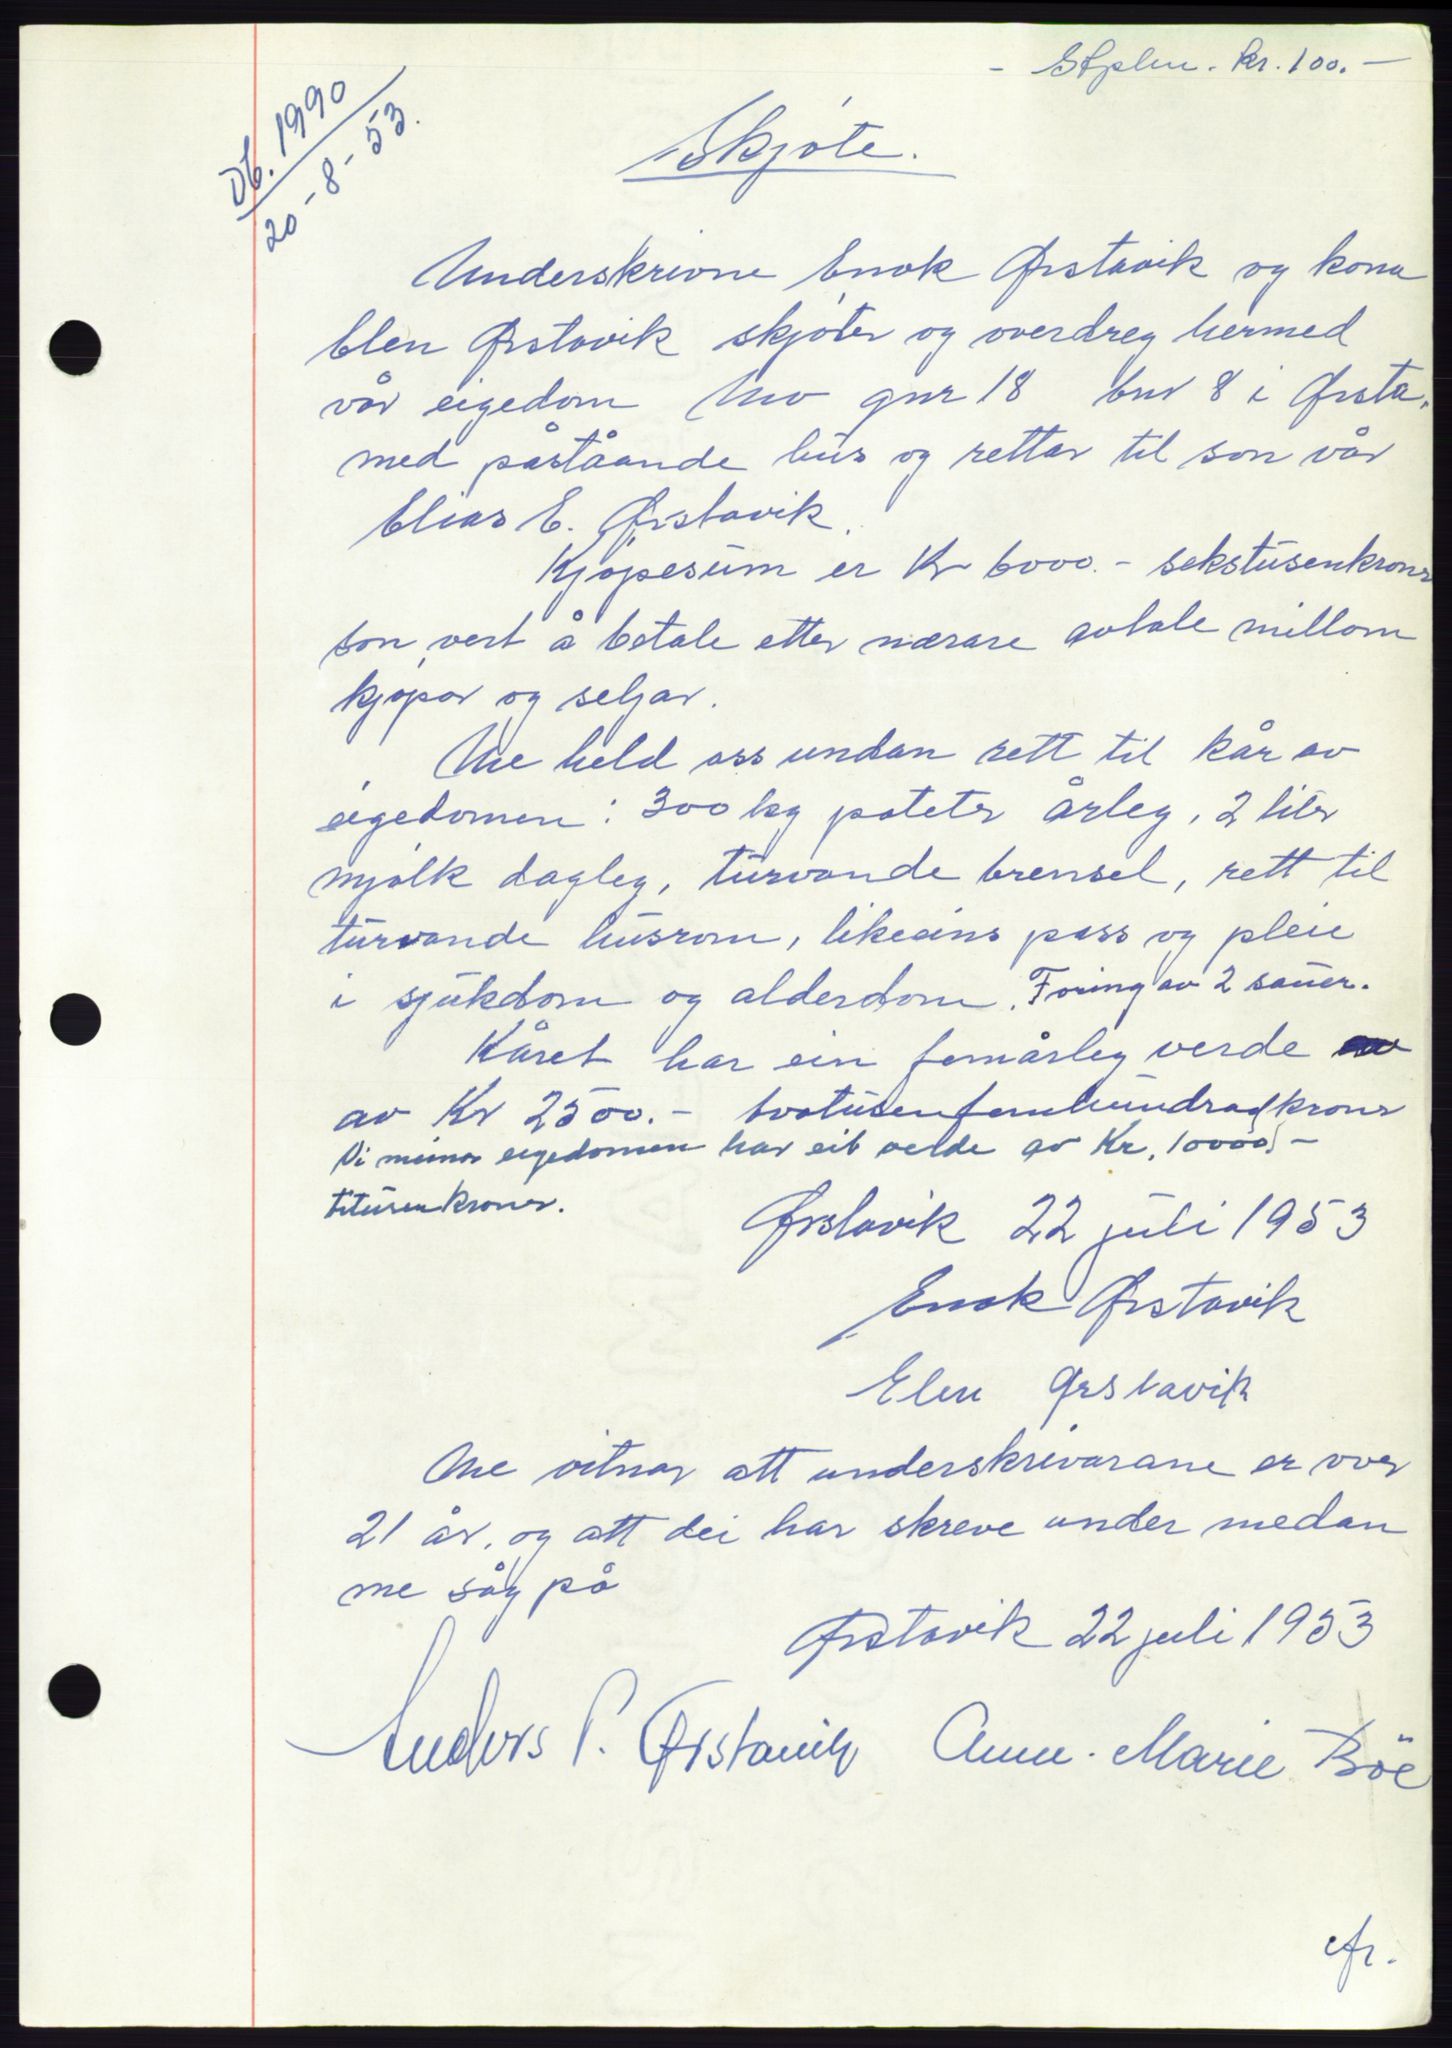 - Stplm. kr. 100.-
Db. 1990
20-8-53.
Skjøte.
Underskrivne Enok Ørstavik og kona
Elen Ørstavik skjøter og overdreg hermed
vår eigedom Mo gnr 18 bnr 8 i Ørsta.
med påståande hus og rettar til son vår
Elias E. Ørstavik.
Kjøpesum er Kr 6000.- sekstusenkroner
som vert å betale etter nærare avtale millom
kjøpar og seljar.
Me held oss undan rett til kår av
eigedomen: 300 kg poteter årleg, 2 liter
mjølk dagleg, turvande brensel, rett til
turvande husrom, likeeins pass og pleie
i sjukdom og alderdom. Foring av 2 sauer.
Kåret har ein femårleg verde
av Kr 2500.- totusenfemhundradkroner
Vi meiner eigedomen har eit verde av Kr. 10000.-
titusenkroner.
Ørstavik 22 juli 1953
Enok Ørstavik
Elen Ørstavik
Me vitnar att underskrivarane er over
21 år, og att dei har skreve under medan
me såg på
Ørstavik 22 juli 1953
Anders P. Ørstavik Anne-Marie Böe